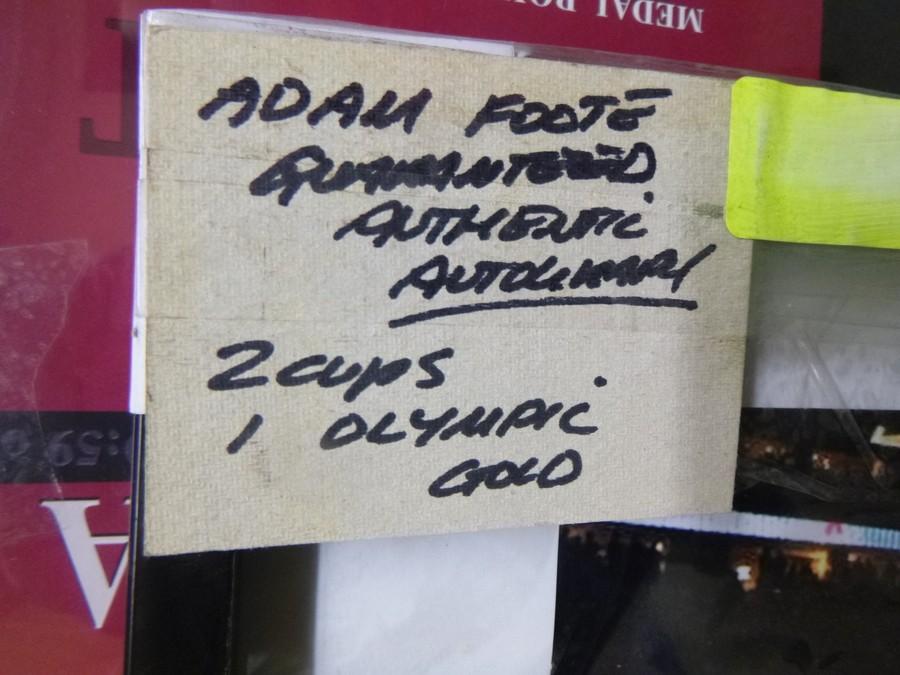 MEDAL
ADAM FOOTE
GUARANTEED
AUTHENTIC
2 CUPS
1 OLYMPIC
GOLD
:59
A